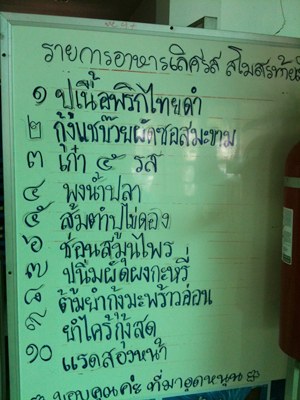 รายการอาหารเลิศรส สโมสร
๑ ปูเนื้อพริกไทยดำ
๒ กุ้งแชบ๊วยผัดซอสมะขาม
๓ เก๋า ๕ รส
๔ พุงน้ำปลา
๕ ส้มตำปูไข่ดอง
๖ ช่อนสมุนไพร
๗ ปูนิ่มผัดผงกะหรี่
๘ ต้มยำกุ้งมะพร้าวอ่อน
๙ ยำไคร้กุ้งสด
๑๐ แรดสองหน้า
ขอบคุณค่ะ ที่มาอุดหนุน